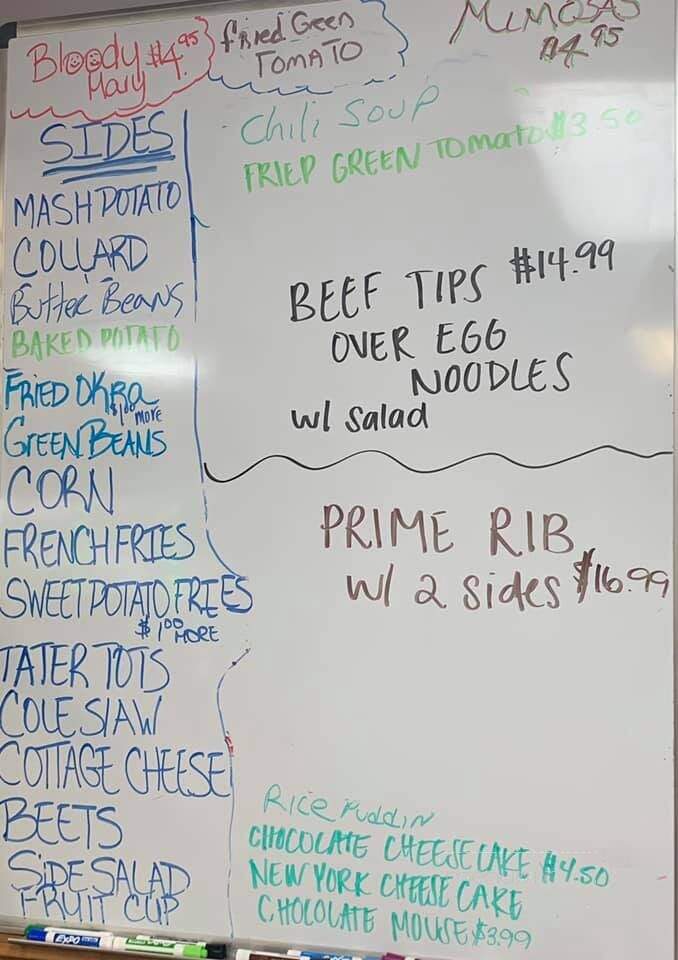 Bloody $4.95
Mary
fried Green
TOMATO
MIMOSAS
$4.95
SIDES
MASH POTATO
COLLARD
Butter Beans
BAKED POTATO
FRIED OKRA
$1.00 more
GREEN BEANS
CORN
FRENCH FRIES
SWEET POTATO FRIES
$1.00 MORE
TATER TOTS
COLE SLAW
COTTAGE CHEESE
BEETS
SIDE SALAD
FRUIT CUP
Chili Soup
FRIED GREEN TOMATO $3.50
BEEF TIPS $14.99
OVER EGG
NOODLES
w/ Salad
PRIME RIB
w/ 2 sides $16.99
Rice Puddin
CHOCOLATE CHEESE CAKE $4.50
NEW YORK CHEESE CAKE
CHOCOLATE MOUSE $3.99
EXPO